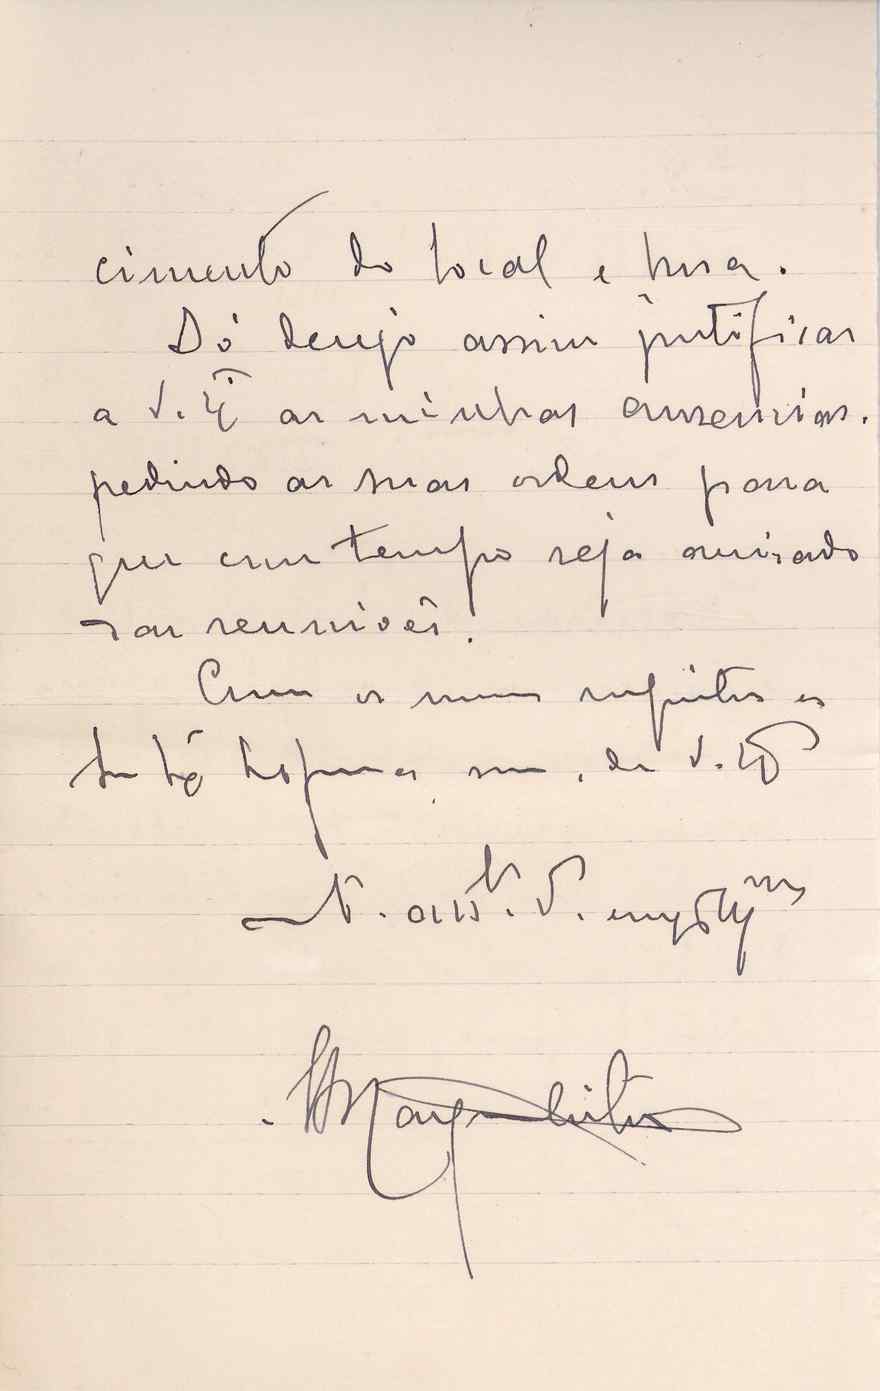 cimento do local e hora.
Só desejo assim justificar
a V. Exª as minhas ausencias.
pedindo as suas ordens para
que com tempo seja avisado
das reuniões.
Com os meus respeitos
sou, de V. Exª
attº. V.